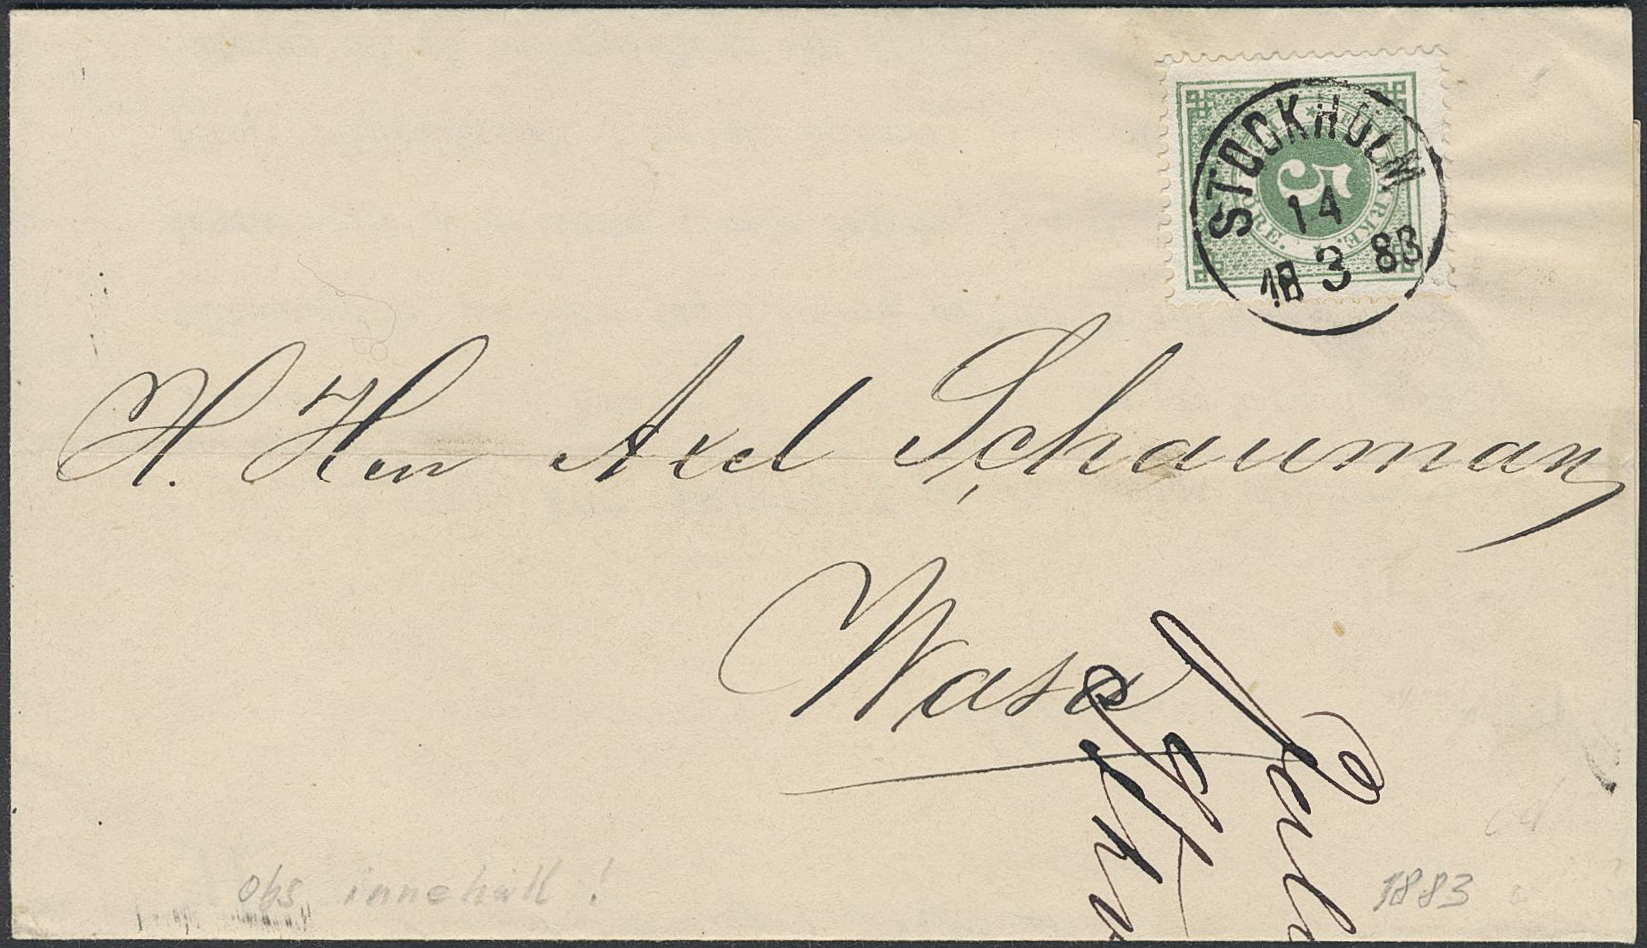 STOCKHOLM
14
18 3 83
5
ÖRE.
H. Herr Axel Schauman
Wasa
obs innehåll!
1883